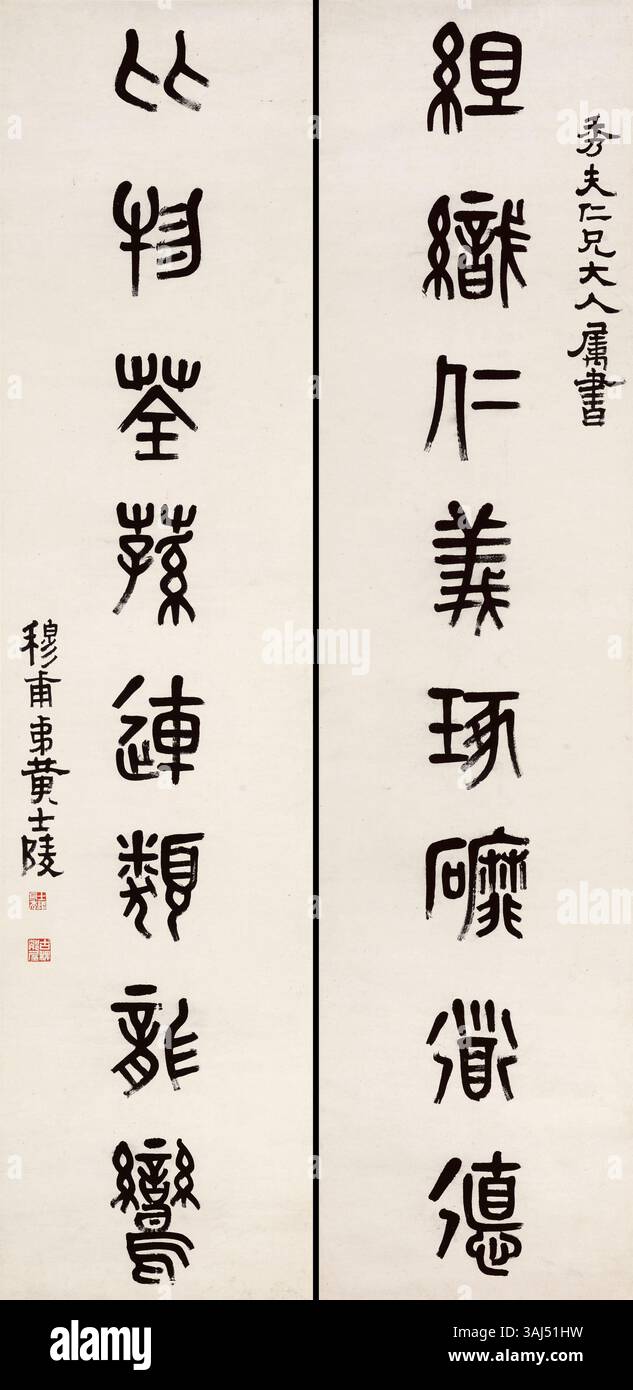 秀夫仁兄大人属書
組織仁義琢礳道德
比物荃蓀連類龍鸞
穆甫弟黃士陵
alamy
Image ID: 3AJ51HW
www.alamy.com